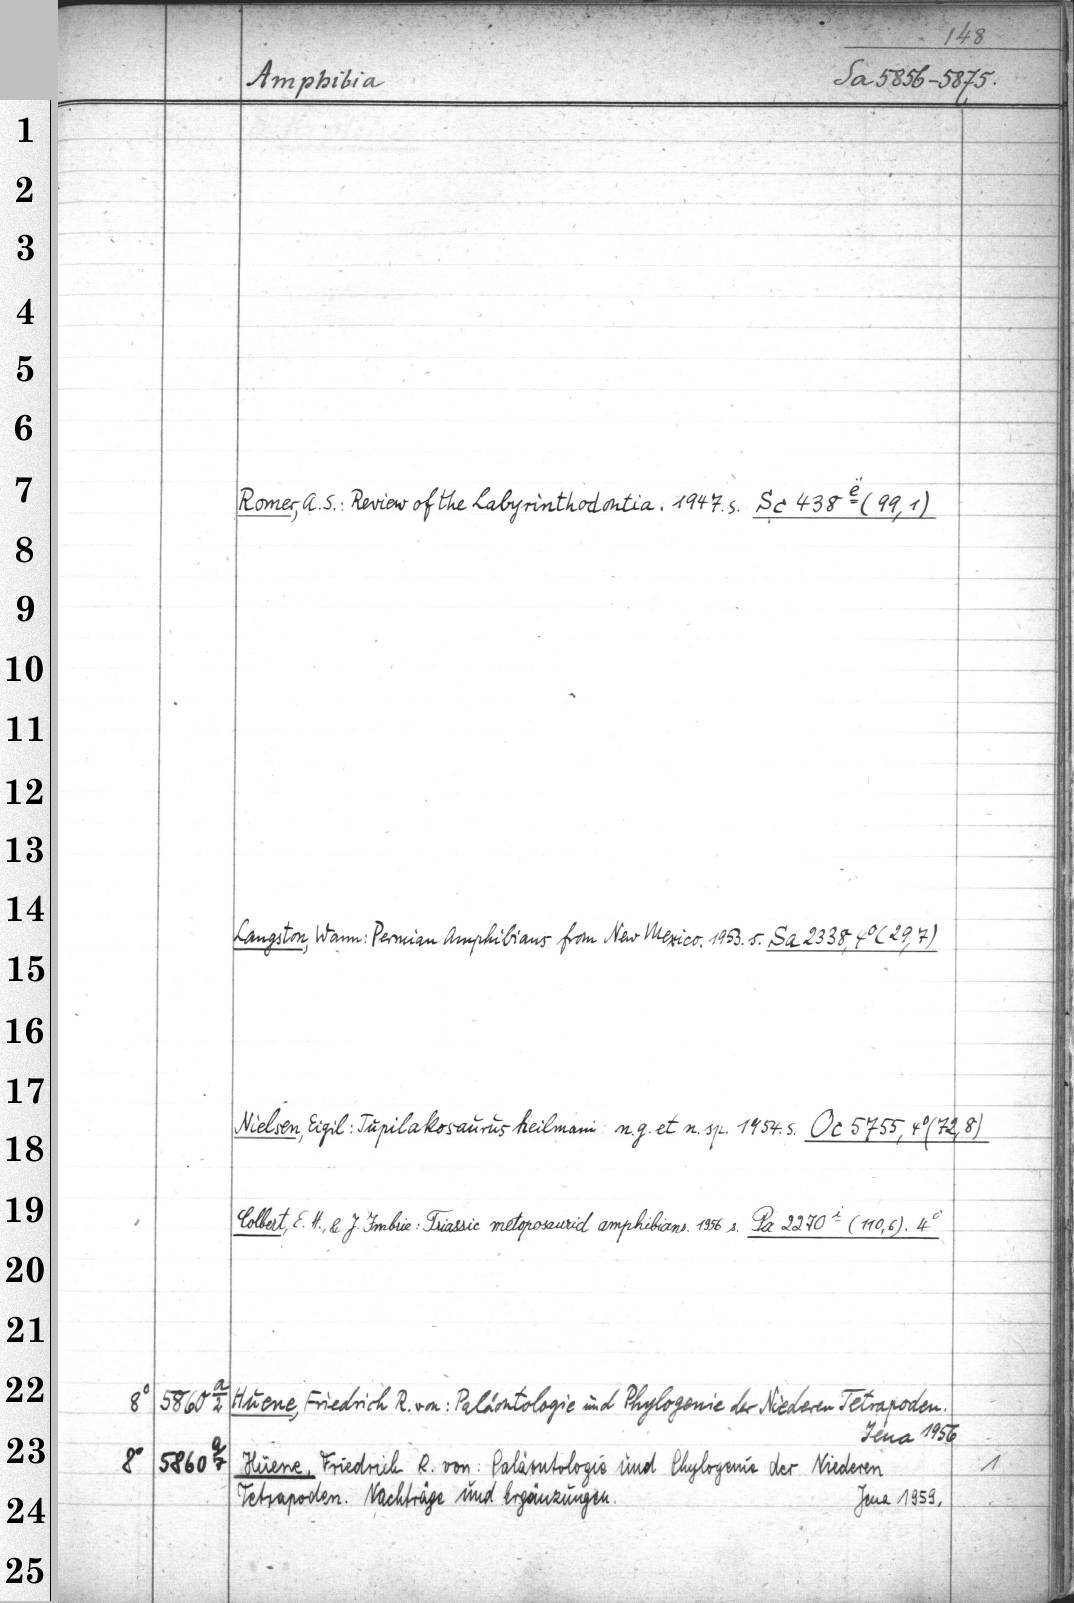 148
Amphibia Sa 5856-5875.
1
2
3
4
5
6
7
Romer, A.S.: Review of the Labyrinthodontia. 1947. s. Sc 438 ë (99,1)
8
9
10
11
12
13
14
Langston, Wann: Permian Amphibians from New Mexico. 1953. s. Sa 2338, 4° (29,7)
15
16
17
Nielsen, Eigil: Tupilakosaurus heilmani n.g. et n. sp. 1954. s. Oc 5755, 4° (72,8)
18
19
Colbert, E. H., & J. Imbrie: Triassic metoposaurid amphibians. 1956 s. Pa 2270 i (110,6). 4°
20
21
22
8° 5860 a/2 Huene, Friedrich R. von: Paläontologie und Phylogenie der Niederen Tetrapoden.
Jena 1956
23
8° 5860 a/7 Huene, Friedrich R. von: Paläontologie und Phylogenie der Niederen 1
Tetrapoden. Nachträge und Ergänzungen. Jena 1959.
24
25